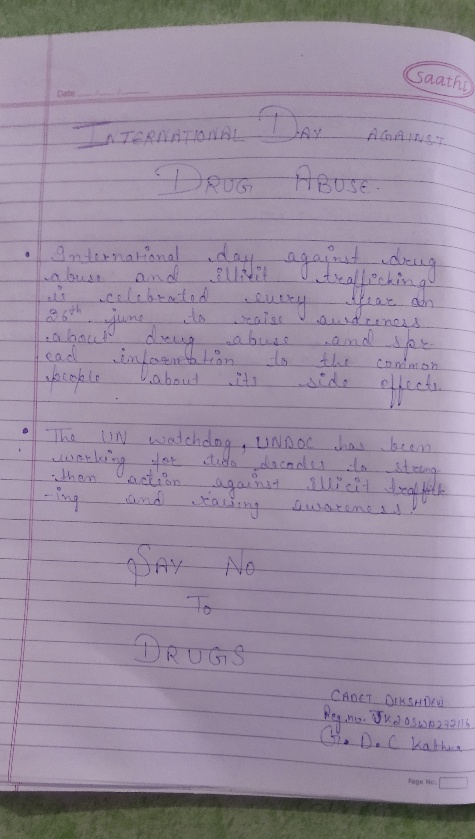 saathi
Date
INTERNATIONAL DAY AGAINST
DRUG ABUSE.
• International day against drug
abuse and illicit trafficking
is celebrated every year on
26th june to raise awareness
about drug abuse and spr
ead information to the common
people about its side effects.
• The UN watchdog, UNDOC has been
working for two decades to streng
-then action against illicit traffick
-ing and raising awareness.
SAY NO
TO
DRUGS
CADET
Reg.no.
D.C Kathua
Page No.